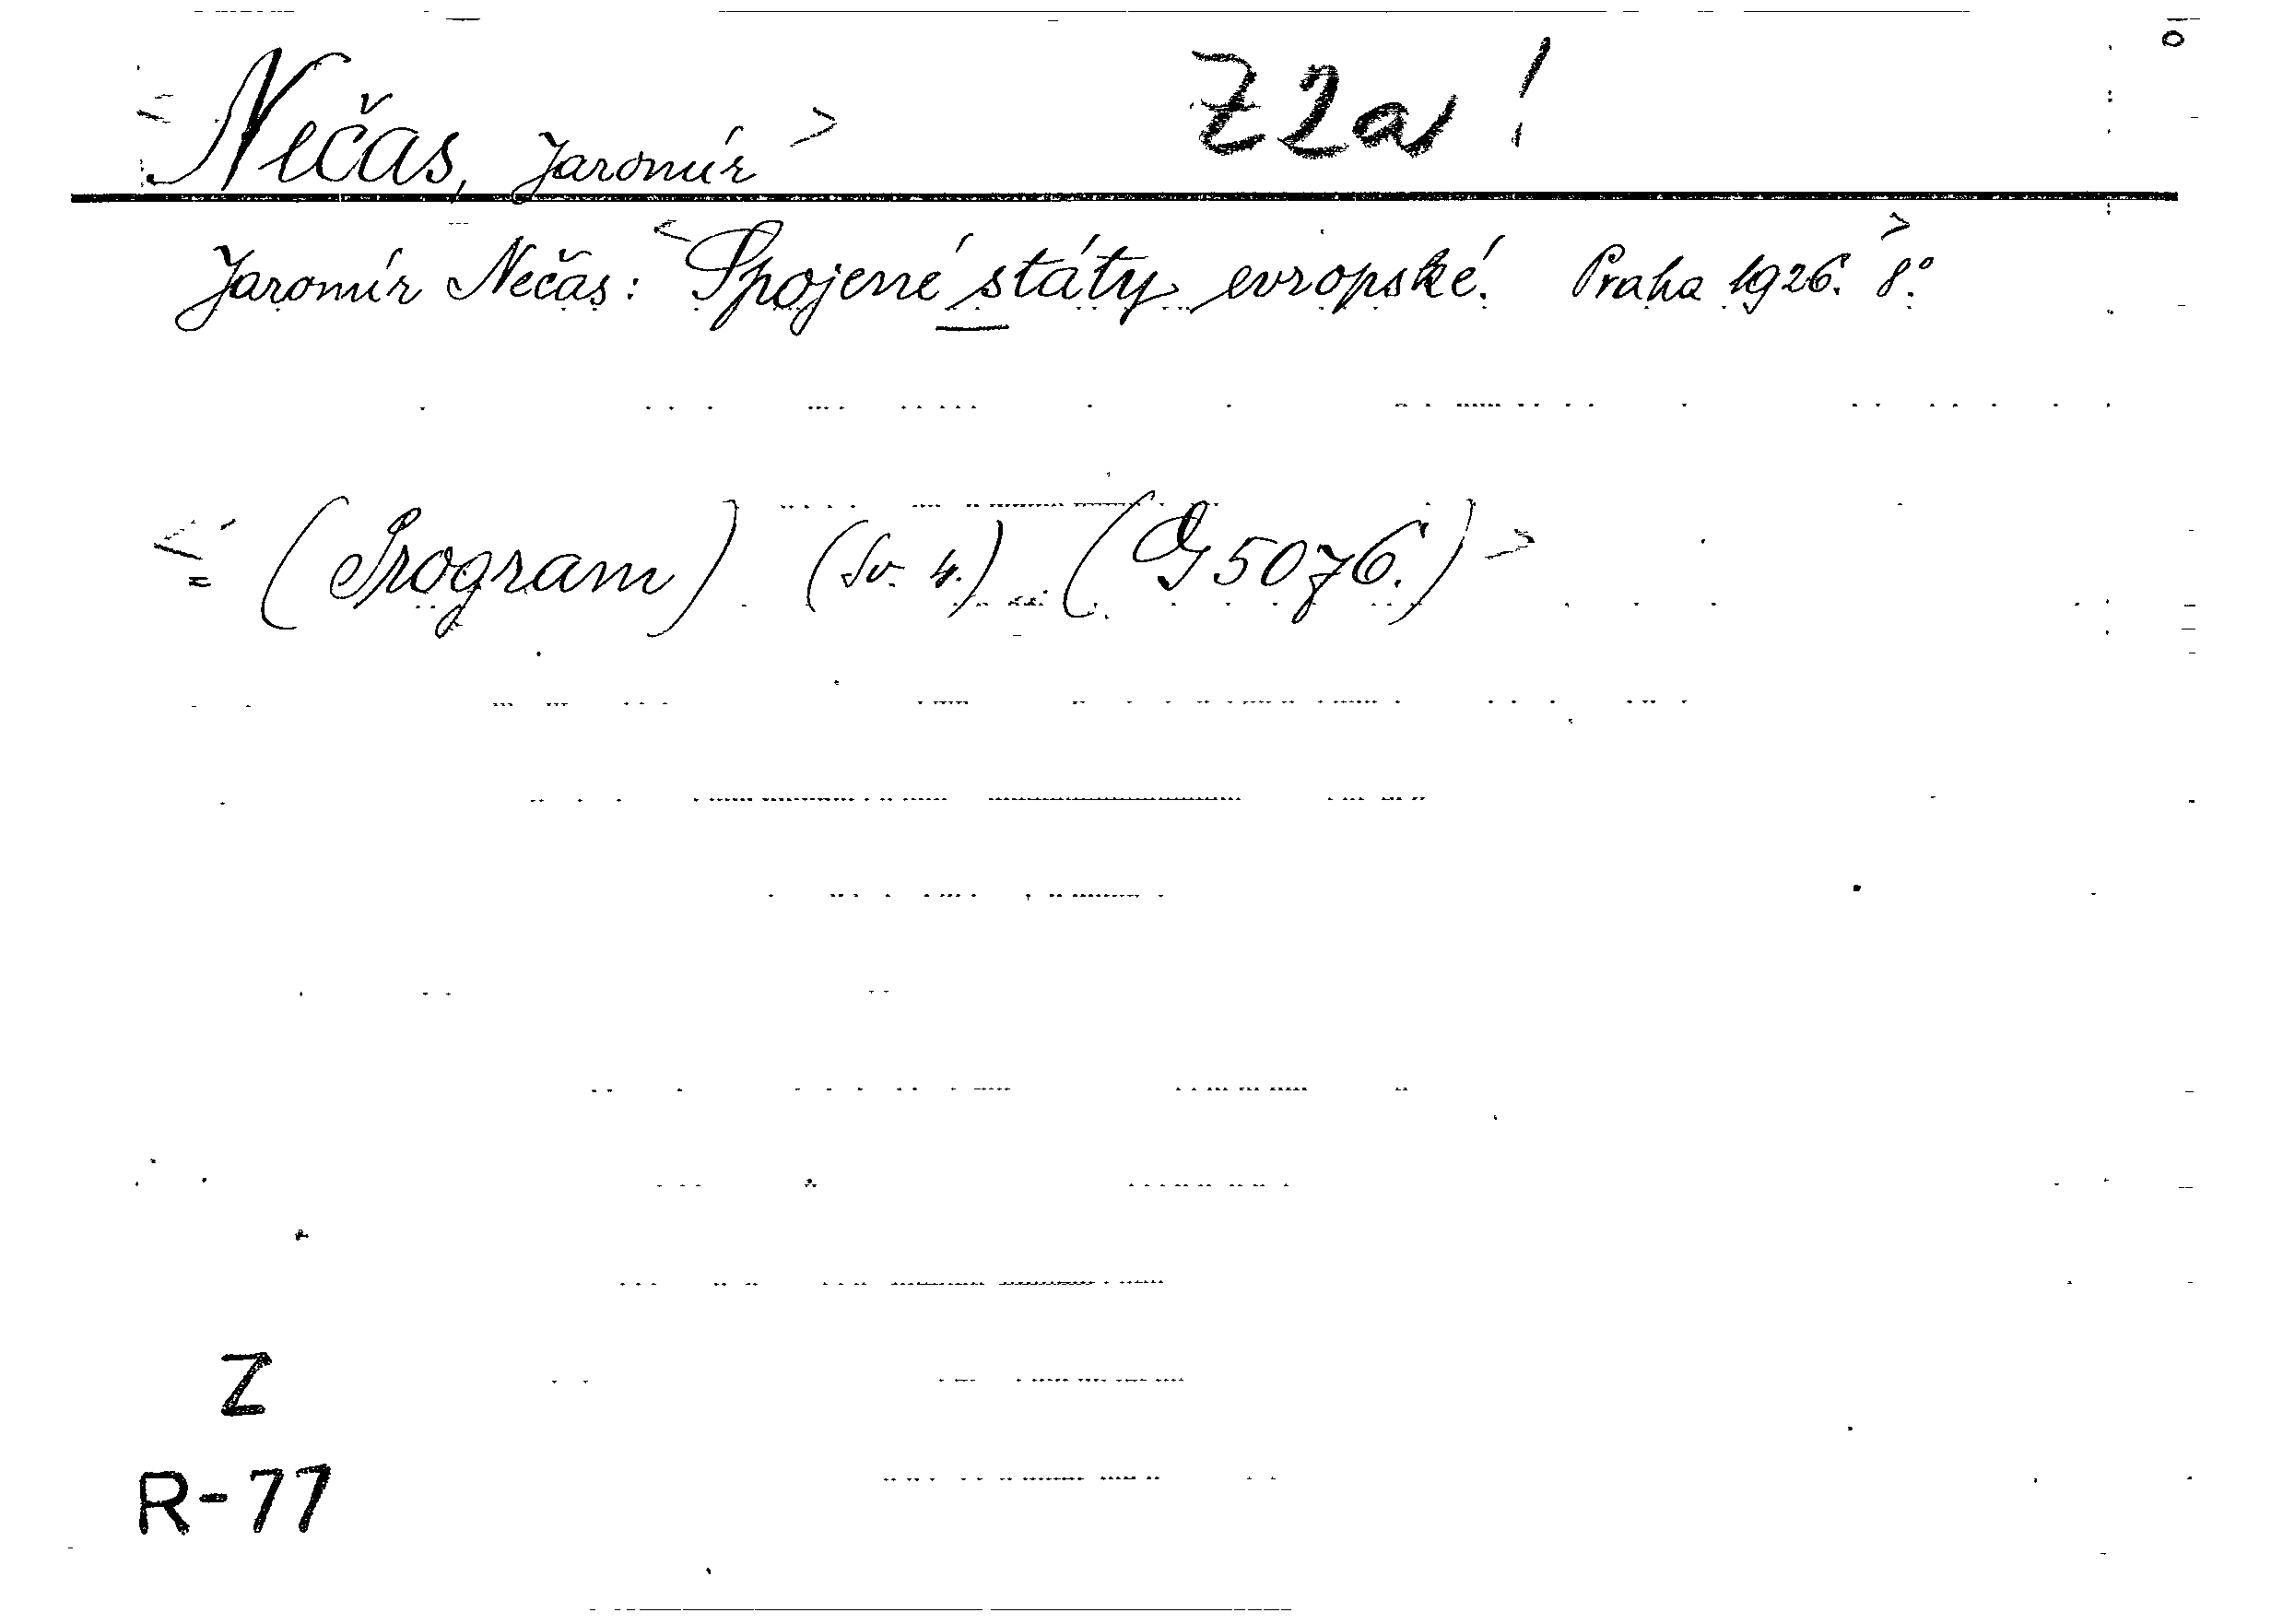 < Nečas, Jaromír > Z 2a !
Jaromír Nečas: < Spojené státy evropské. Praha 1926. > 8°.
< (Program) (Sv. 4.) (G 5076.) >
Z
R-77